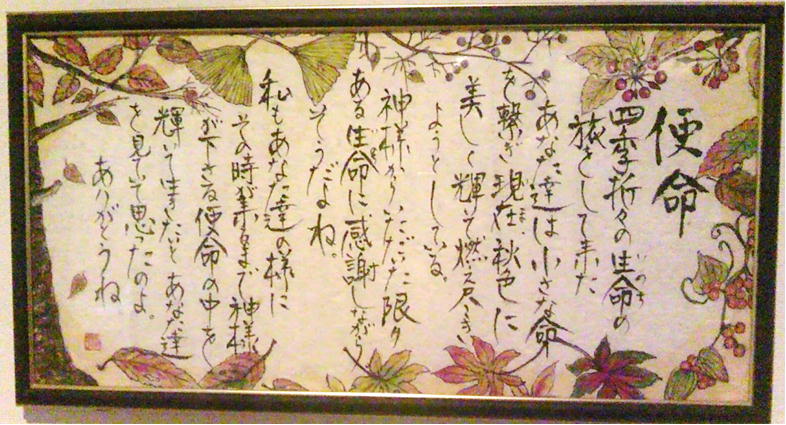 使命
四季折々の生命の
いのち
旅をして来た
あなた達は小さな命
を繋ぎ現在、秋色に
美しく輝そ燃え尽き
ようとしている。
神様からいただいた限り
ある生命に感謝しながら
そうだよね。
私もあなた達の様に
その時が来るまで神様
が下さる使命の中を
輝いて生きたいとあなた達
を見ていて思ったのよ。
ありがとうね